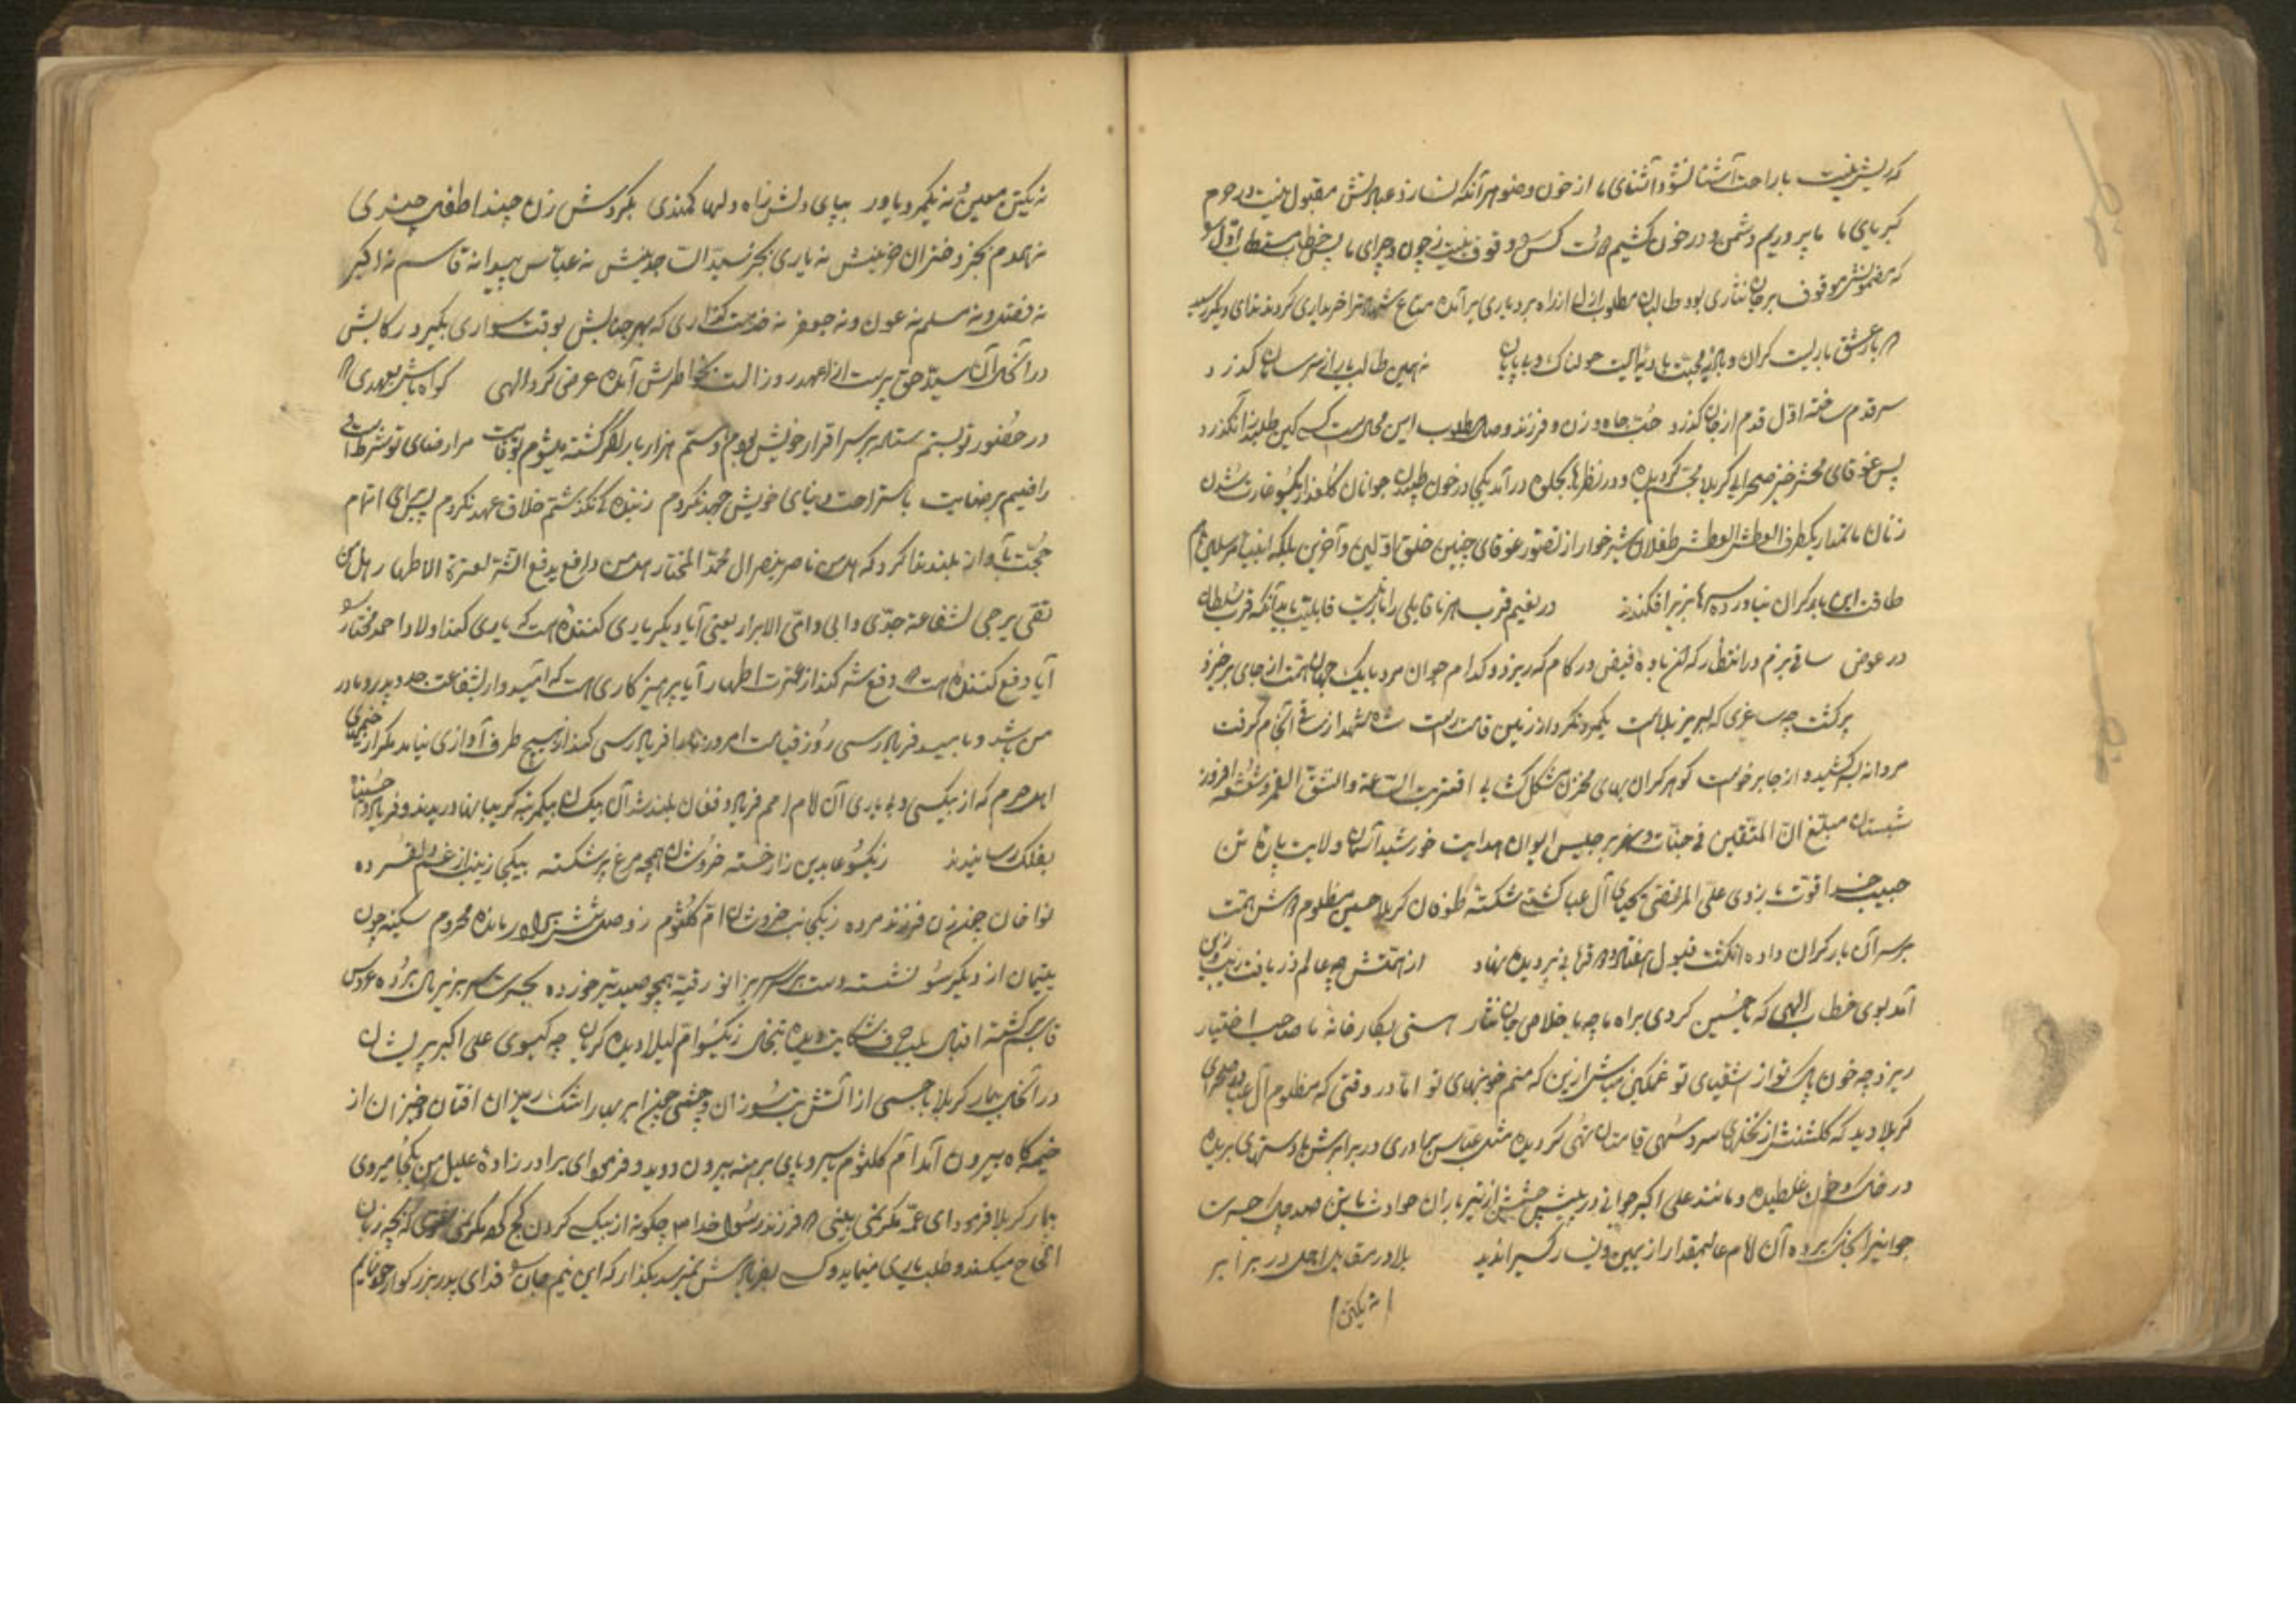 که نیست باراحت آشنا نشود آشنای ما از خون وضو هر آنکه نسازد عبادتش مقبول نیست در حرم
کبریای ما ما پروریم دشمن و در خون کشیم دوست کس را وقوف نیست ز چون و چرای ما پس خطاب
که مضمونش موقوف بر جان نثاری بود طالبان مطلوب ازلی از راه بردباری برآمده متاع شهادت را خریداری کردند ندای دیگر رسید
که بار عشق باریست گران و بادیه محبت بادیه ایست هولناک و بی پایان نه همین طالب یار از سر سامان گذرد
سر قدم ساخته اول قدم از جان گذرد حب جاه و زن و فرزند و وصال مطلوب این محالست کسی کین طلبد زان گذرد
پس غوغای محشر خیز صحرای کربلا مجسم گردیده و در نظرها بجلوه درآمد یکجا در خون طپیدن جوانان گلعذار یکسو غارت شدن
زنان ماتمدار یکطرف العطش العطش طفلان شیرخوار از تصور غوغای چنین خلق اولین و آخرین بلکه انبیا مرسلین هم
طاقت این بار گران نیاورده سرها بزیر افکندند در بغیم قرب هر ناقابلی را بار نیست قابلیت باید آنکه قرب سلطان
در عوض ساقی بزم در انتظار که لغز باده فیض در کام که ریزد و کدام جوان مرد بایک جهان همت از جای برخیزد
برگشت چه ساغری که لبریز بلاست یکمرد نکرد از زمین قامت راست شاه شهدا ز ساقی انجام گرفت
مردانه بسر کشید و از جا برخواست گوهر گران بهای مخزن مشکل گشایی اقتربت الساعة وانشق القمر و شعشعه افروز
شبستان مبلغ ان المتقین فی جنات و نهر بر جلیس ایوان هدایت خورشید آسمان ولایت پاره تن
حبیب خدا قوت بازوی علی المرتضی یکتای آل عبا کشتی شکسته طوفان کربلا حسین مظلوم دوش همت
بر سر آن بار گران داده انگشت قبول هفتاد و دو قربانی بر دیده نهاد از همتش چه عالم ذر یافت زیب و زین
آمد بوی خطاب الهی که یا حسین کردی براه ما چه باخلاص جان نثار هستی بکارخانه ما صاحب اختیار
ریزد چه خون پاک تو از اشقیای تو غمگین مباش ازین که منم خونبهای تو اما در وقتی که مظلوم آل عبا در صحرای
کربلا دید که گلشنش از نخلهای سرو سهی قامتان تهی گردیده مثل عباس بهادری در برابرش با دستهای بریده
در خاک و خون غلطیده و مانند علی اکبر جوانی در پیش چشمش از تیر باران حوادث با تن صد چاک حسرت
جوانیرا بخاک برده آن امام عالیمقدار از یمین و یسار کسیرا ندید بلا در مقابل اجل در برابر
نه یکتن
نه یکتن معین نه یکمرد یاور بپای دلش ز آه دلها کمندی بگردش زن چند و اطفال چندی
نه همدم بجز دختران حزینش نه یاری بجز سید الساجدینش نه عباس پیدا نه قاسم نه اکبر
نه فضل و نه مسلم نه عون و نه جعفر نه خدمت گذاری که بهر جنابش بوقت سواری بگیرد رکابش
در آنحال آن سید حق پرست از عهد روز الست بخاطرش آمده عرض کرد الهی گواه باش بعهدی که
در حضور تو بستم ستاده بر سر اقرار خویش بودم و هستم هزار بار اگر کشته میشوم بوفایت مرا رضای تو شرط است
راضیم برضایت باستراحت دنیای خویش جهد نکردم ز بنده گی نگذشتم خلاف عهد نکردم پس برای اتمام
حجت بآواز بلند ندا کرد که هل من ناصر ینصر آل محمد المختار هل من دافع یدفع الشر لعترة الاطهار هل من
تقی یرجی لشفاعة جدی و ابی و امی الابرار یعنی آیا دیگر یاری کننده هست که یاری کند اولاد احمد مختار را
آیا دفع کننده هست که دفع شر کند از عترت اطهار آیا پرهیزگاری هست که امیدوار بشفاعت جد و پدر و مادر
من باشد و بامید فریادرسی روز قیامت امروز بما فریادرسی کند از هیچ طرف آوازی نیامد مگر از خیمهای
اهل حرم که از بیکسی و بی یاری آن امام امم فریاد و فغان بلند شد آن بیکسان بیکمرتبه گریبانها دریدند و فریاد واحسیناه
بفلک رسانیدند ز یکسو عابدین زار خسته خروشان همچو مرغ پر شکسته بیکجا زینب از غم دل فسرده
نوا خوان چون زن فرزند مرده ز یکجانب خروشان ام کلثوم ز وصل شش برادر مانده محروم سکینه چون
یتیمان از دیگر سو نشسته دست بر سر سر بزانو رقیه همچو صید تیر خورده بحسرت سر بزیر بال برده عروس
قاسم برگشته اقبال بلب حرف شکایت دیده تبخال ز یکسو ام لیلا دیده گریان چه گیسوی علی اکبر پریشان
در آنحال بیمار کربلا با جسمی از آتش تب سوزان و چشمی چون ابر بهار اشک ریزان افتان و خیزان از
خیمه گاه بیرون آمد ام کلثوم با سر و پای برهنه بیرون دوید و فرمود ای برادرزاده علیل من بکجا میروی
بیمار کربلا فرمود ای عمه مگر نمی بینی که فرزند رسول خدا چگونه از بیکسی گردن کج کرده مگر نمی شنوی که بچه زبان
الحاح میکند و طلب یاری مینماید و کسی بفریادش نمیرسد بگذار که این نیم جان را فدای پدر بزرگوار خود نمایم